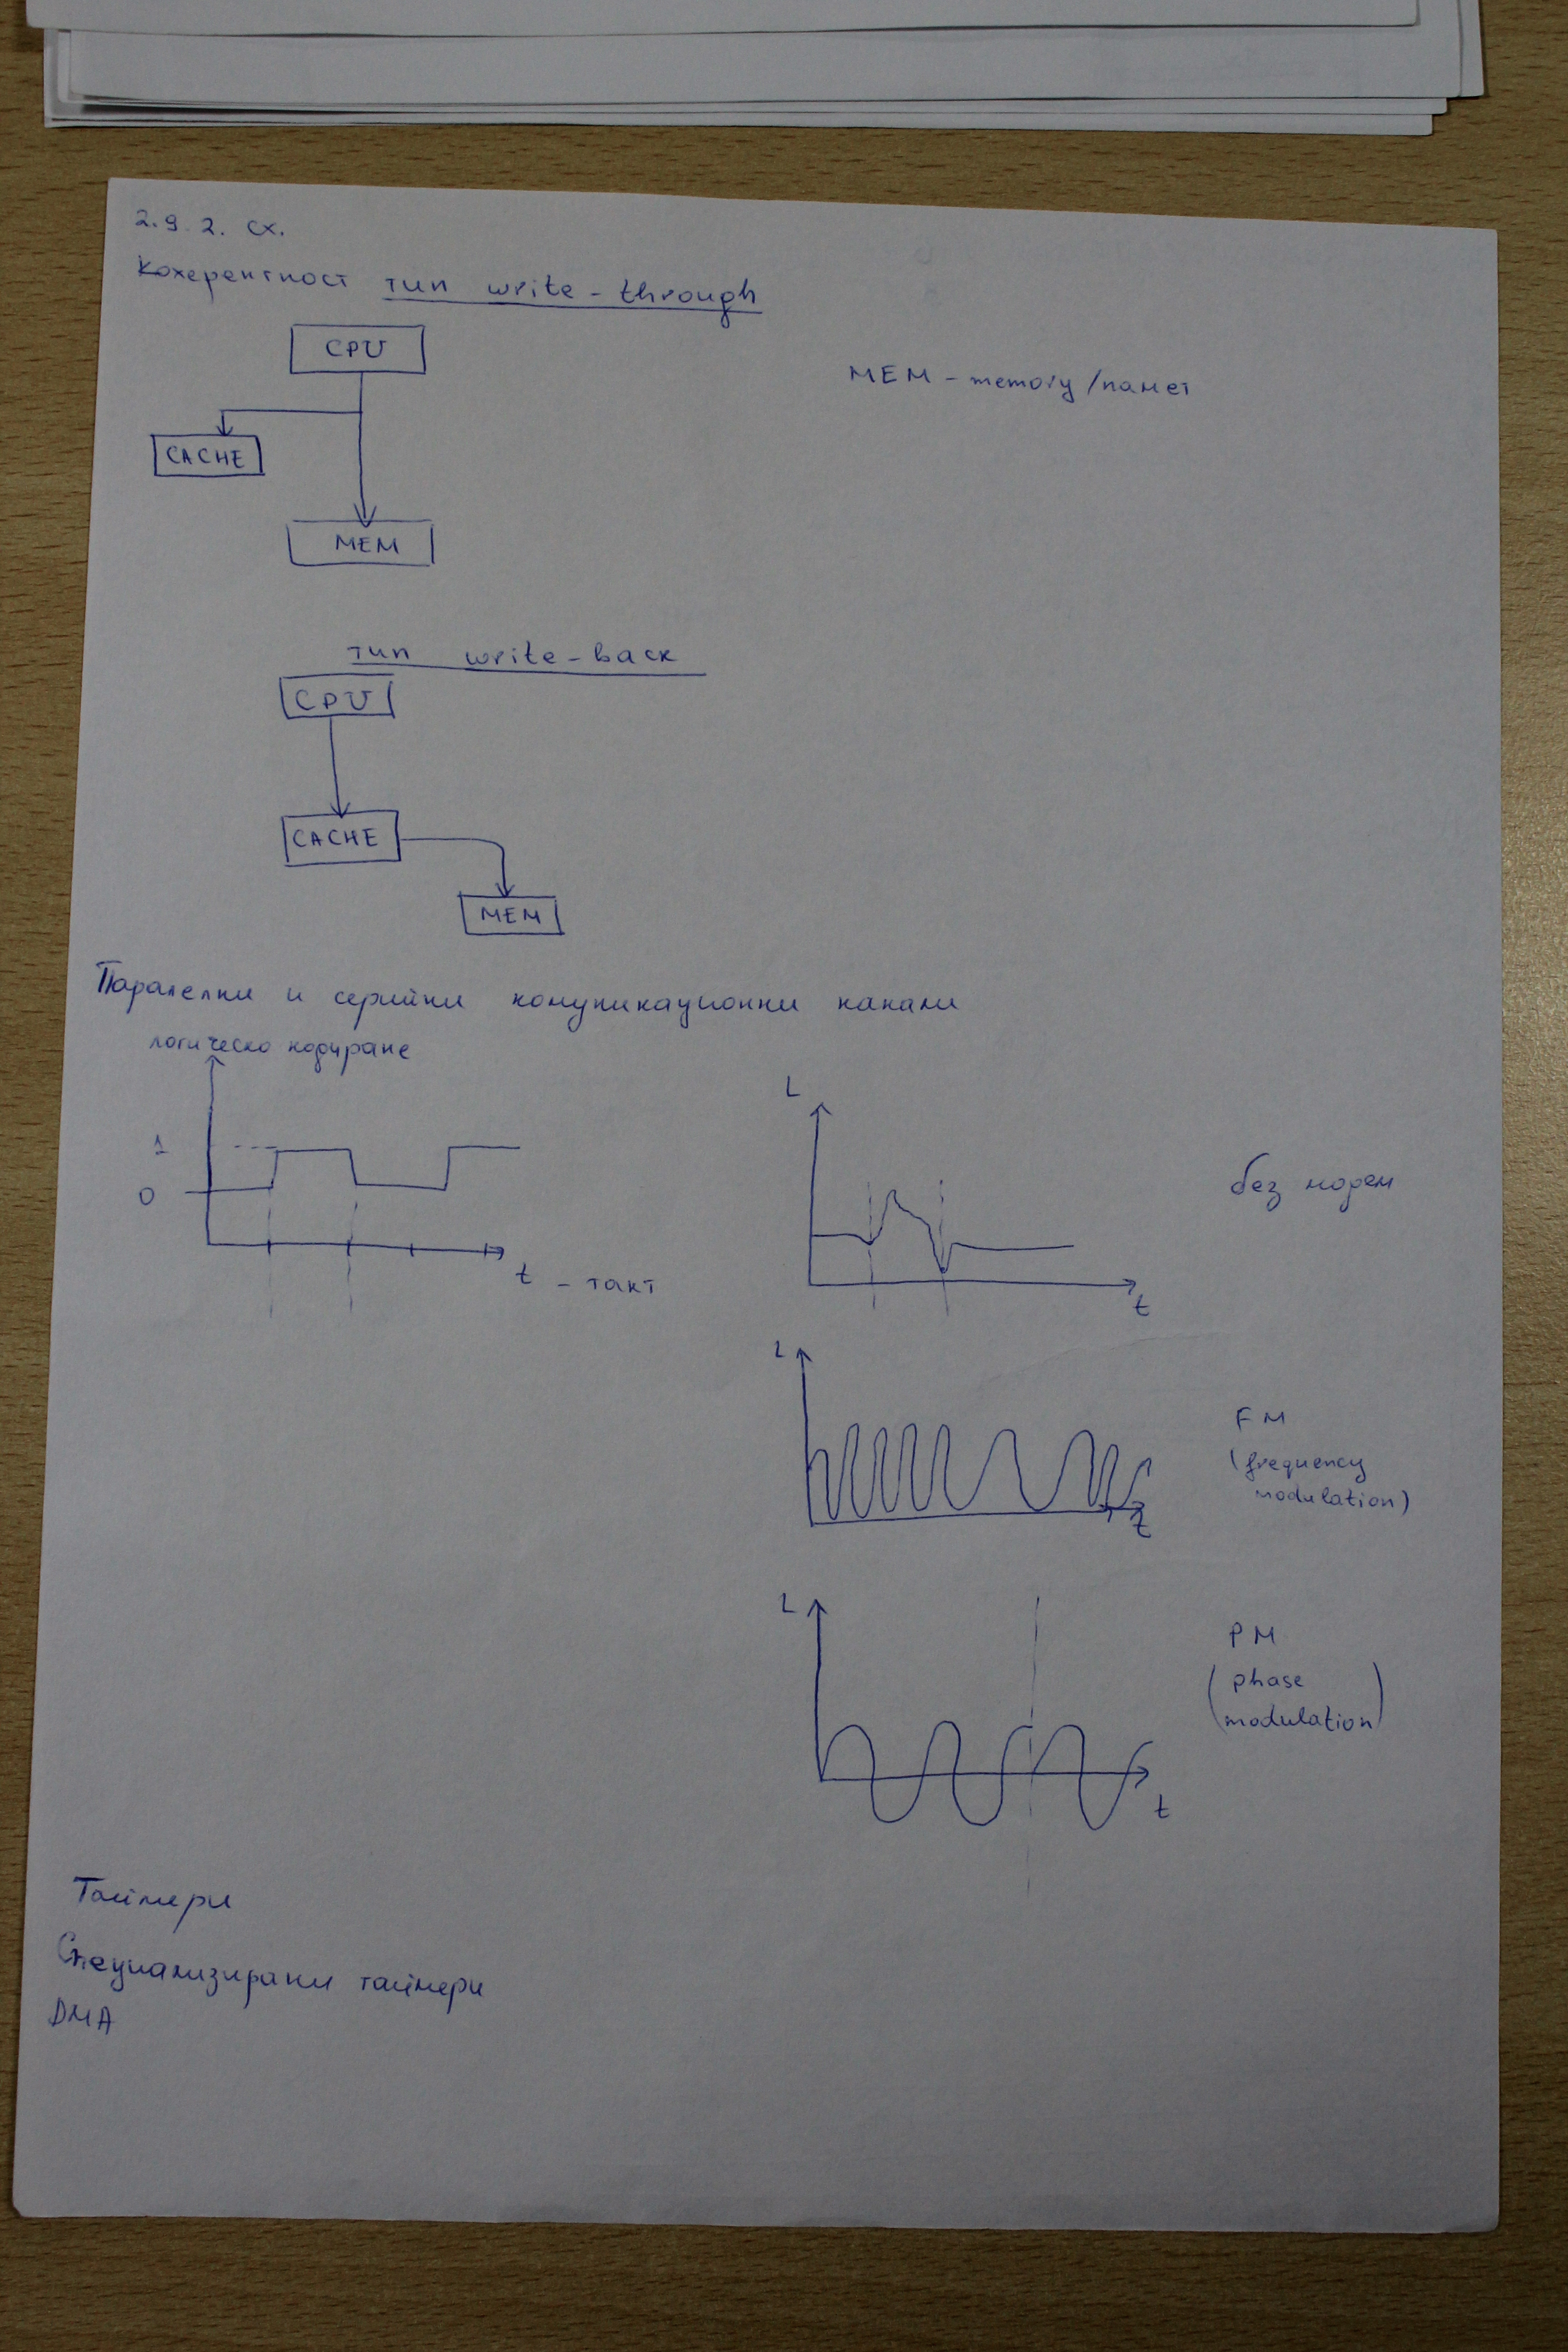 2.9.2. сх.
Кохерентност тип write-through
CPU
MEM - memory/памет
CACHE
MEM
тип write-back
CPU
CACHE
MEM
Паралелни и серийни комуникационни канали
логическо кодиране
L
1
0
без модем
t - такт
t
L
FM
(frequency
modulation)
t
L
PM
(phase
modulation)
t
Таймери
Специализирани таймери
DMA